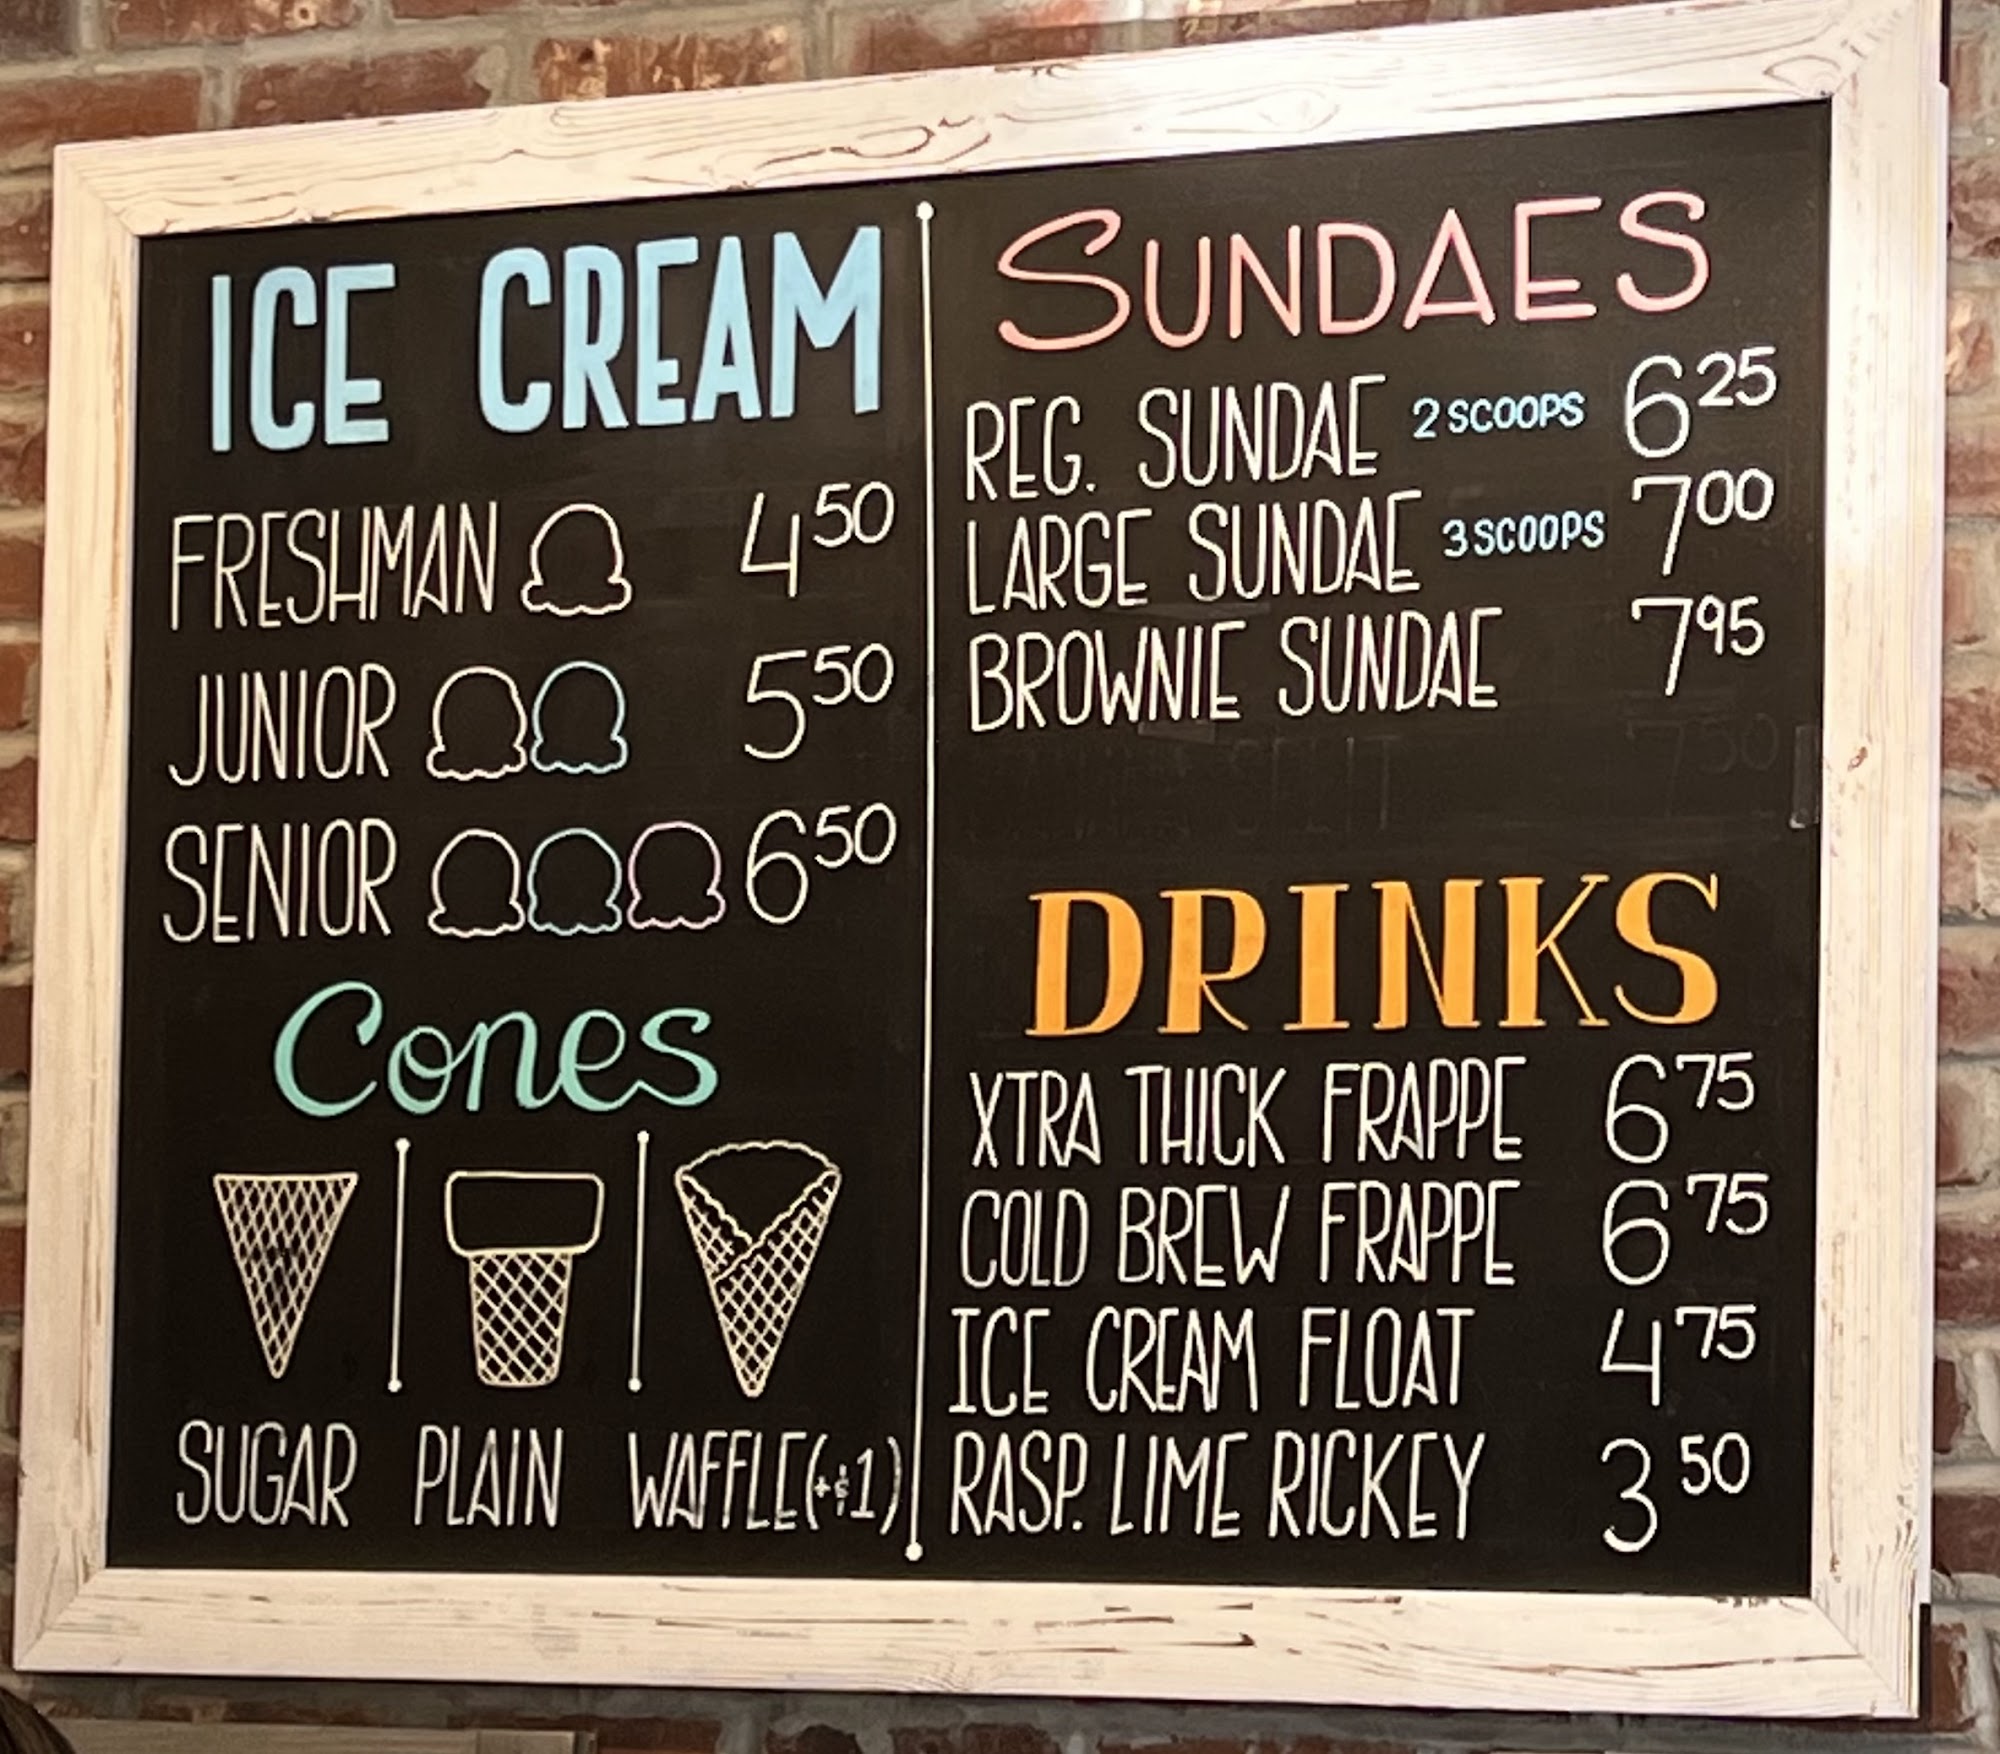 ICE CREAM
FRESHMAN 4.50
JUNIOR 5.50
SENIOR 6.50
Cones
SUGAR PLAIN WAFFLE(+$1)
SUNDAES
REG. SUNDAE 2 SCOOPS 6.25
LARGE SUNDAE 3 SCOOPS 7.00
BROWNIE SUNDAE 7.95
SPLIT 7.50
DRINKS
XTRA THICK FRAPPE 6.75
COLD BREW FRAPPE 6.75
ICE CREAM FLOAT 4.75
RASP. LIME RICKEY 3.50